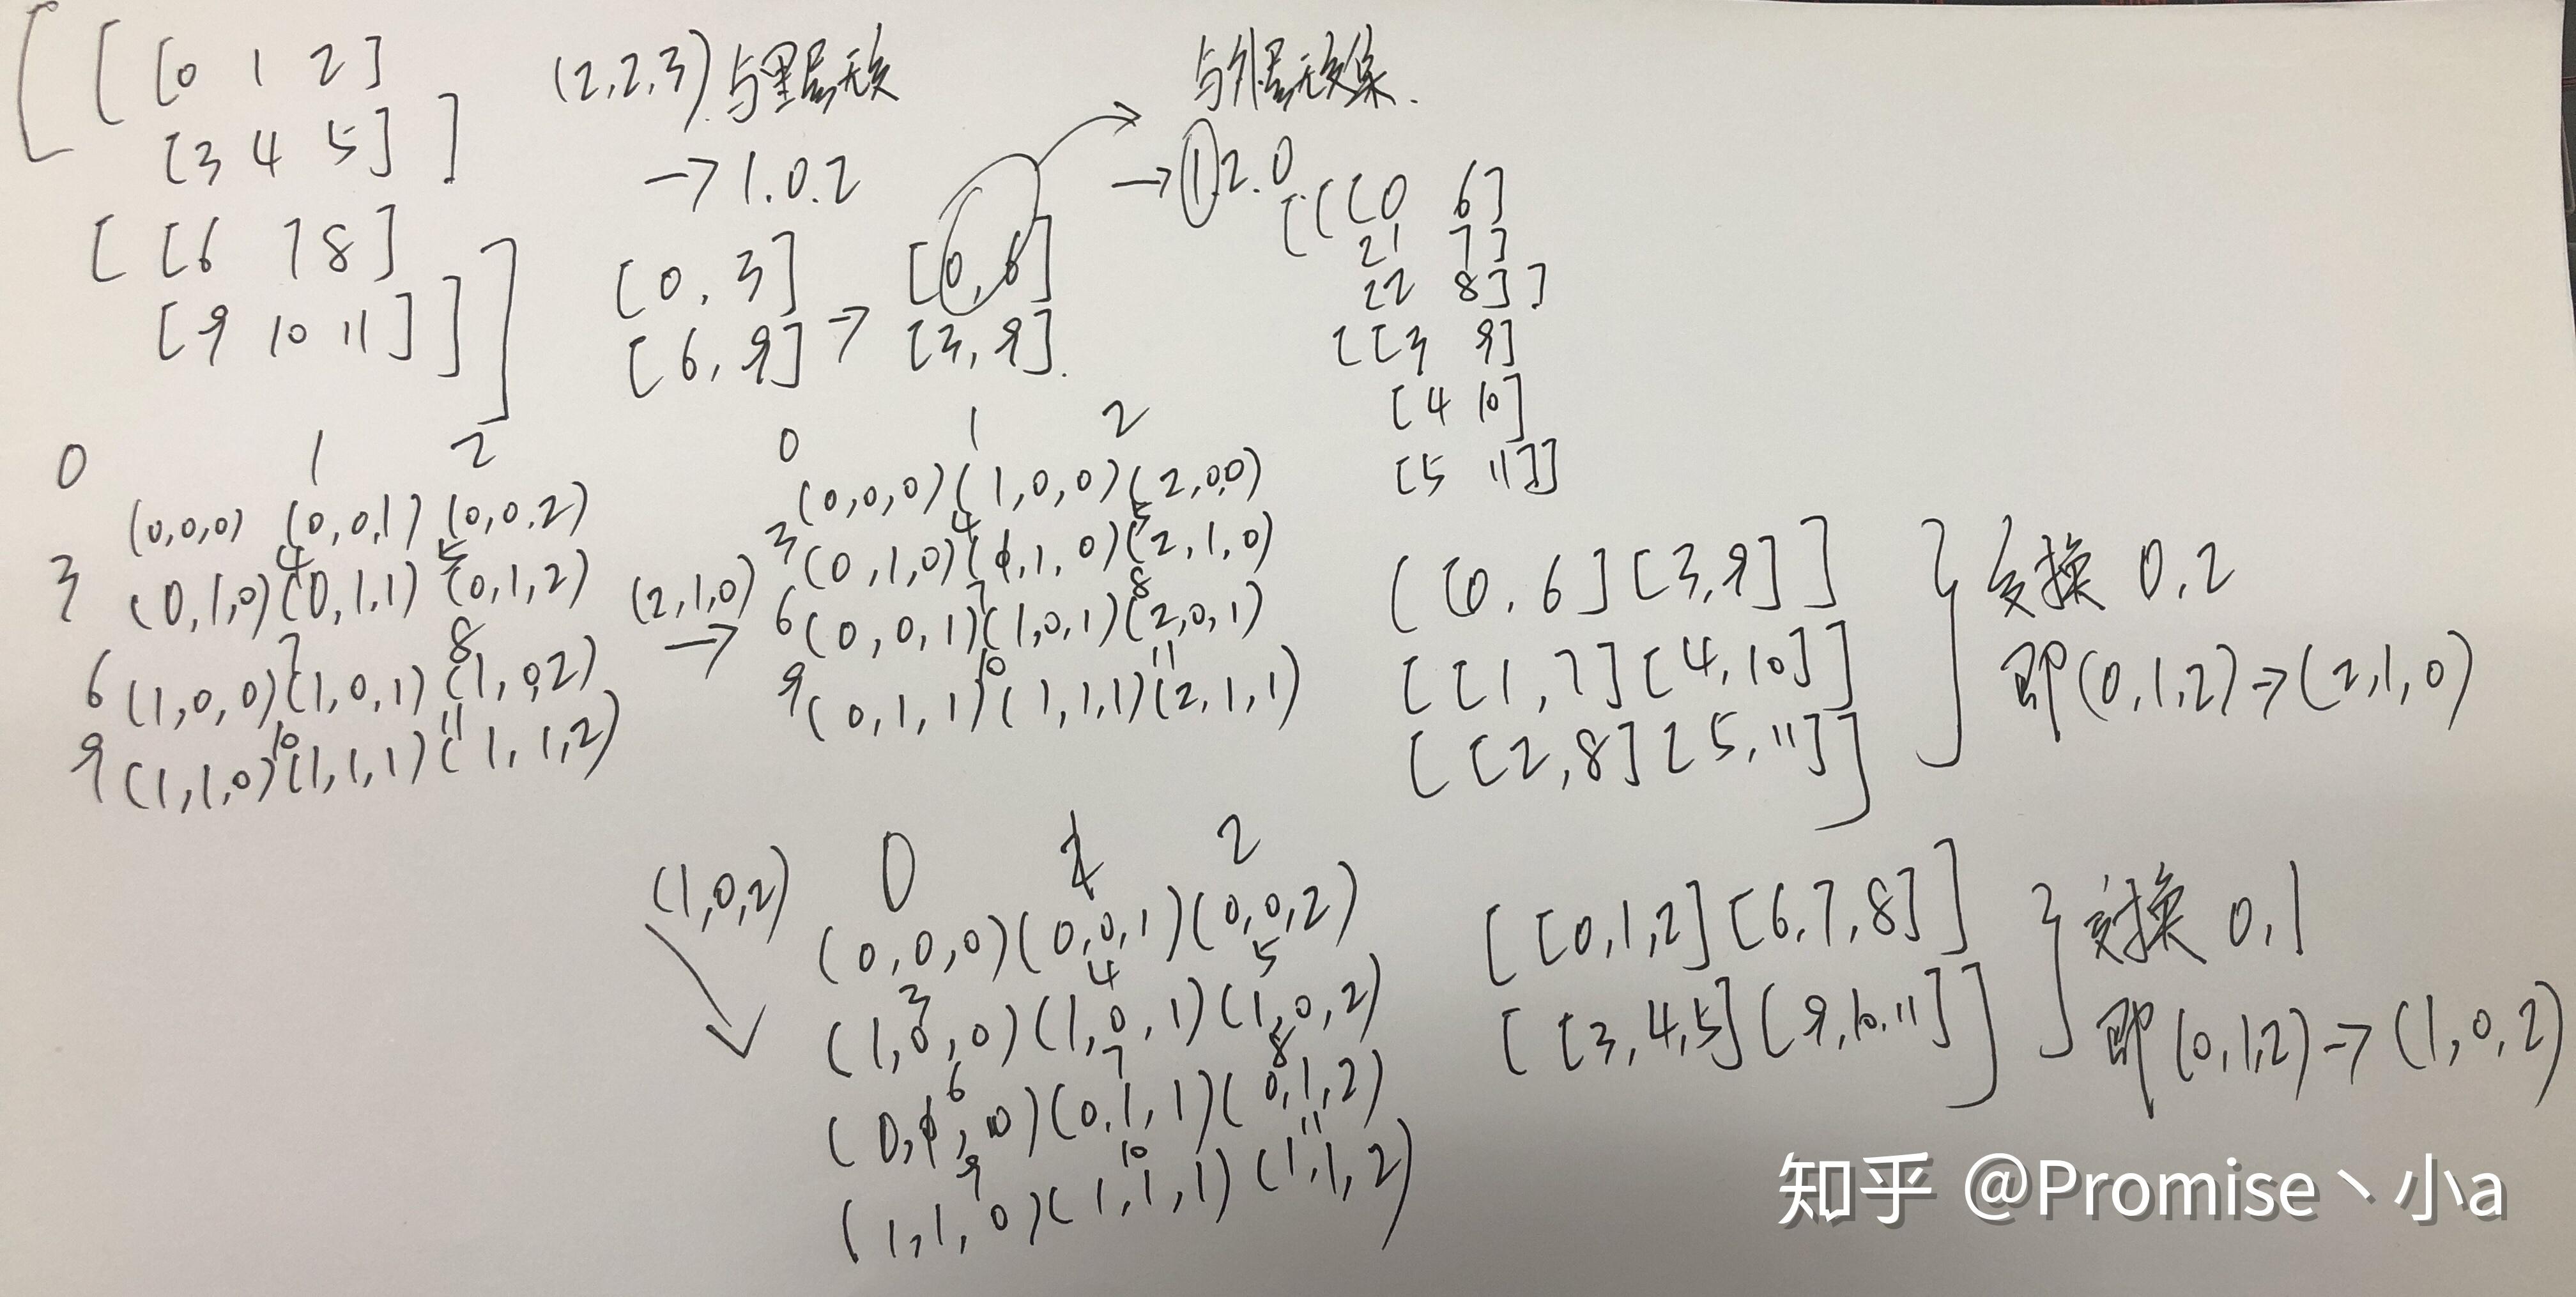 [ [ [0 1 2]
[3 4 5] ]
[ [6 7 8]
[9 10 11] ] ]
(2,2,3) 与里层无关
→ 1.0.2
[0, 3]
[6, 9] →
[0, 6]
[3, 9].
与外层无交集.
→ 1.2.0
[ [ [0 6]
[1 7]
[2 8] ]
[ [3 9]
[4 10]
[5 11] ]
0 1 2
(0,0,0) (0,0,1) (0,0,2)
3 4 5
(0,1,0) (0,1,1) (0,1,2)
6 7 8
(1,0,0) (1,0,1) (1,0,2)
9 10 11
(1,1,0) (1,1,1) (1,1,2)
(2,1,0)
→
0 1 2
(0,0,0) (1,0,0) (2,0,0)
3 4 5
(0,1,0) (1,1,0) (2,1,0)
6 7 8
(0,0,1) (1,0,1) (2,0,1)
9 10 11
(0,1,1) (1,1,1) (2,1,1)
[ [0, 6] [3, 9] ]
[ [1, 7] [4, 10] ]
[ [2, 8] [5, 11] ] ]
} 变换 0,2
即 (0,1,2) → (2,1,0)
(1,0,2)
0 1 2
(0,0,0) (0,0,1) (0,0,2)
3 4 5
(1,0,0) (1,0,1) (1,0,2)
6 7 8
(0,1,0) (0,1,1) (0,1,2)
9 10 11
(1,1,0) (1,1,1) (1,1,2)
[ [0,1,2] [6,7,8] ]
[ [3,4,5] [9,10,11] ] ]
} 变换 0,1
即 (0,1,2) → (1,0,2)
知乎 @Promise丶小a